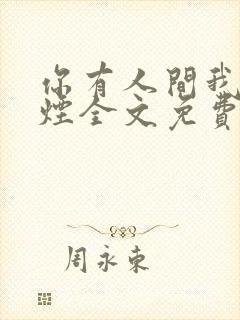 你有人間我
煙全文免費
周永東